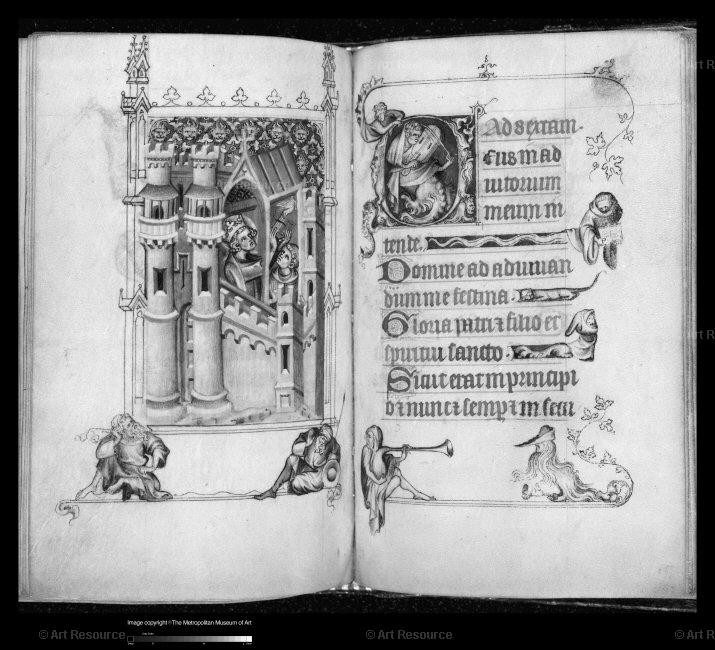 Ad sextam.
eus in ad
iutorium
meum in
tende.
Domine ad adiuuan
dum me festina.
Gloria patri et filio et
spiritui sancto.
Sicut erat in principi
o et nunc et semper et in secu
Image copyright ©The Metropolitan Museum of Art
© Art Resource
© Art Resource
© Art Resource